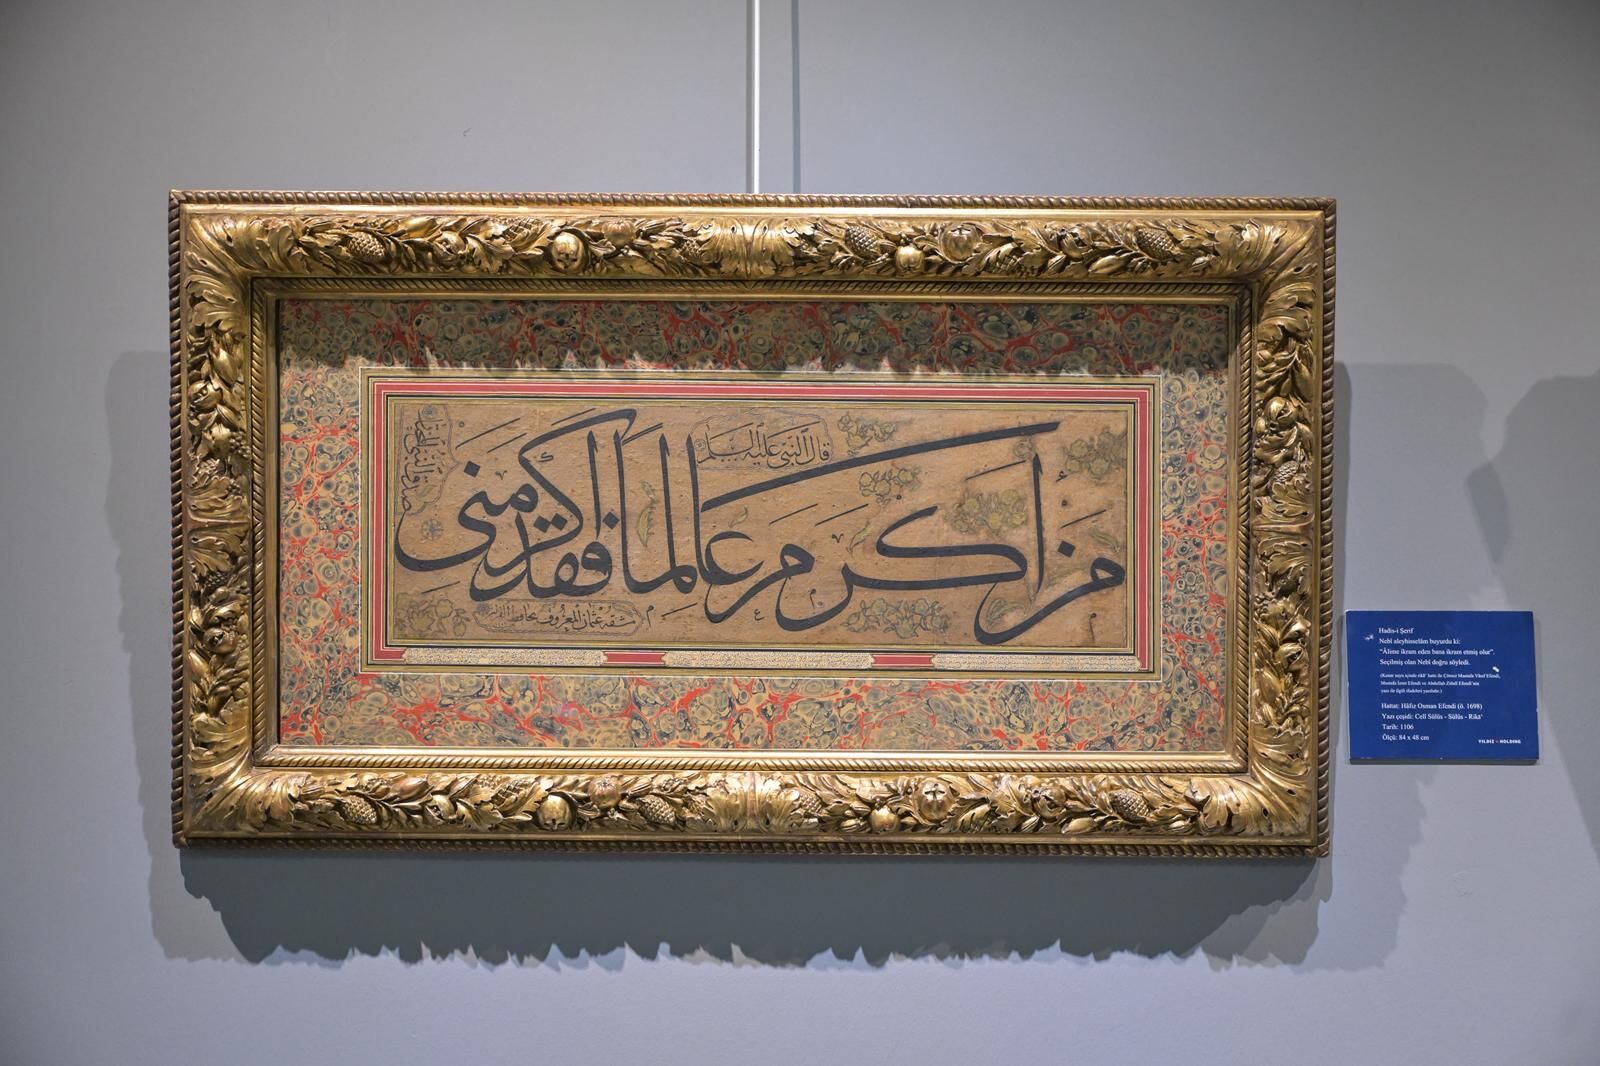 قال النبي عليه السلام
من أكرم عالما فقد أكرمني
صدق النبي المجتبى
مشقه عثمان المعروف بحافظ القرآن
Hadis-i Şerif
Nebî aleyhisselâm buyurdu ki:
“Âlime ikram eden bana ikram etmiş olur”.
Seçilmiş olan Nebî doğru söyledi.
(Kenar suyu içinde rikâ' hattı ile Çömez Mustafa Vâsıf Efendi,
Mustafa İzzet Efendi ve Abdullah Zühdî Efendi'nin
yazı ile ilgili ifadeleri yazılıdır.)
Hattat: Hâfız Osman Efendi (ö. 1698)
Yazı çeşidi: Celî Sülüs - Sülüs - Rikâ'
Tarih: 1106
Ölçü: 84 x 48 cm
YILDIZ HOLDING